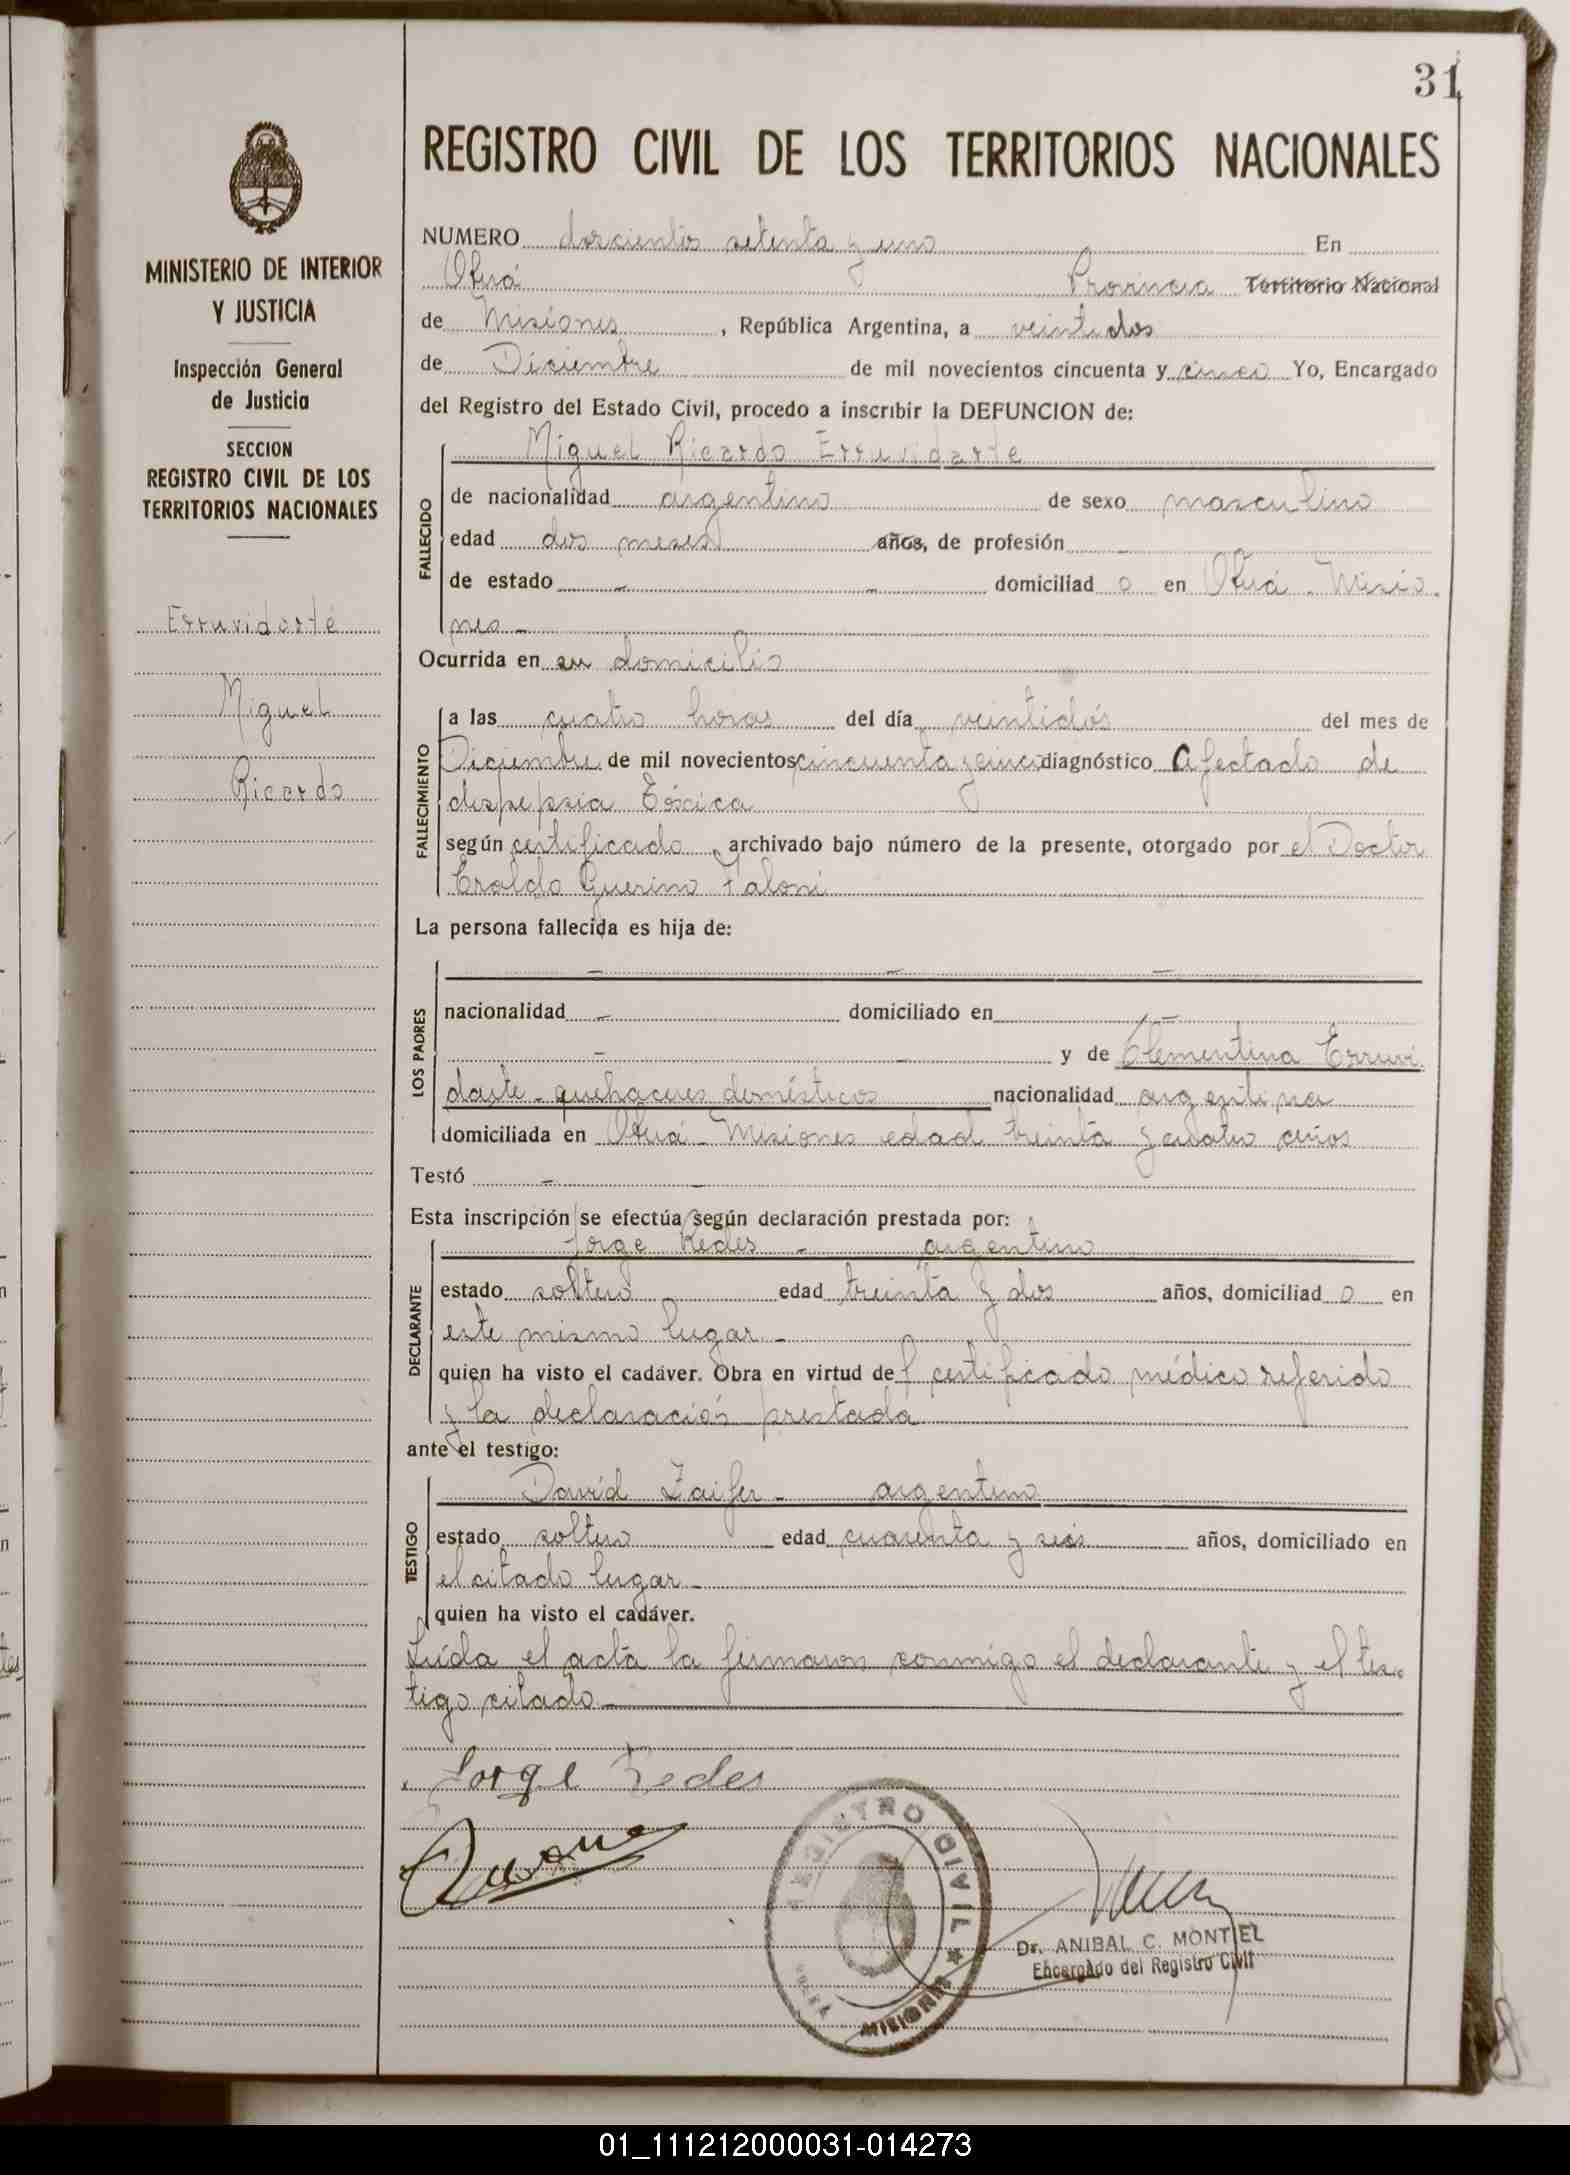 31
REGISTRO CIVIL DE LOS TERRITORIOS NACIONALES
MINISTERIO DE INTERIOR
Y JUSTICIA
Inspección General
de Justicia
SECCION
REGISTRO CIVIL DE LOS
TERRITORIOS NACIONALES
Erruvidarté
Miguel
Ricardo
NUMERO doscientos setenta y uno En
Oberá Provincia Territorio Nacional
de Misiones, República Argentina, a veintidos
de Diciembre de mil novecientos cincuenta y cinco Yo, Encargado
del Registro del Estado Civil, procedo a inscribir la DEFUNCION de:
FALLECIDO
Miguel Ricardo Erruvidarte
de nacionalidad argentino de sexo masculino
edad dos meses años, de profesión
de estado - - domiciliad o en Oberá - Misio-
nes -
Ocurrida en su domicilio
FALLECIMIENTO
a las cuatro horas del día veintidós del mes de
Diciembre de mil novecientos cincuenta y cinco diagnóstico Afectado de
dispepsia Tóxica
según certificado, archivado bajo número de la presente, otorgado por el Doctor
Eraldo Guerino Faloni
La persona fallecida es hija de:
LOS PADRES
- - -
nacionalidad - domiciliado en -
- - y de Clementina Erruvi
darte - quehaceres domésticos nacionalidad argentina
domiciliada en Oberá - Misiones edad treinta y cuatro años
Testó - -
Esta inscripción se efectúa según declaración prestada por:
DECLARANTE
Jorge Redes - argentino
estado soltero edad treinta y dos años, domiciliad o en
este mismo lugar -
quien ha visto el cadáver. Obra en virtud del certificado médico referido
y la declaración prestada
ante el testigo:
TESTIGO
David Zaifer - argentino
estado soltero edad cuarenta y seis años, domiciliado en
el citado lugar -
quien ha visto el cadáver.
Leída el acta la firmaron conmigo el declarante y el tes-
tigo citado -
Jorge Redes
REGISTRO CIVIL ★ MISIONES
Dr. ANIBAL C. MONTIEL
Encargado del Registro Civil
01_111212000031-014273